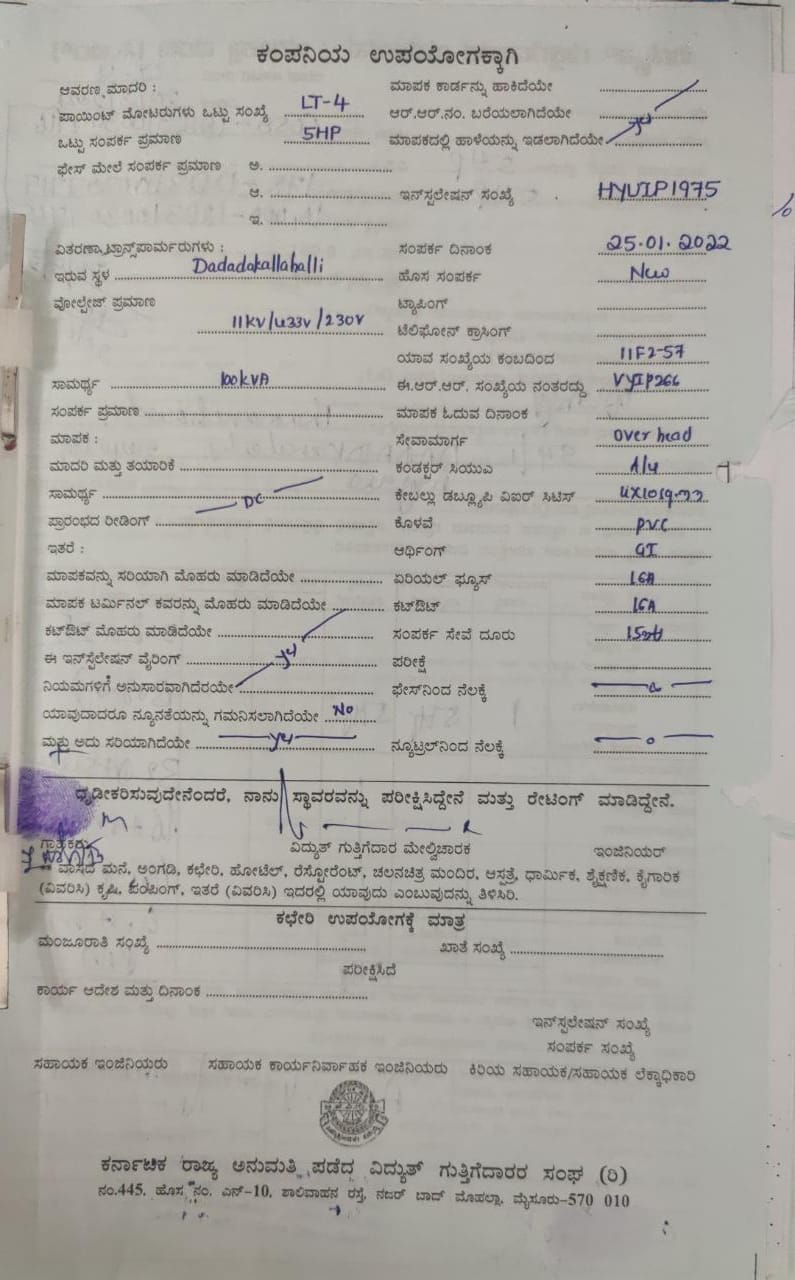 ಕಂಪನಿಯ ಉಪಯೋಗಕ್ಕಾಗಿ
ಆವರಣ ಮಾದರಿ : ಮಾಪಕ ಕಾರ್ಡನ್ನು ಹಾಕಿದೆಯೇ ....................
ಪಾಯಿಂಟ್ ಮೋಟರುಗಳು ಒಟ್ಟು ಸಂಖ್ಯೆ LT-4 ಆರ್.ಆರ್.ನಂ. ಬರೆಯಲಾಗಿದೆಯೇ ....................
ಒಟ್ಟು ಸಂಪರ್ಕ ಪ್ರಮಾಣ 5HP ಮಾಪಕದಲ್ಲಿ ಹಾಳೆಯನ್ನು ಇಡಲಾಗಿದೆಯೇ ....................
ಫೇಸ್ ಮೇಲೆ ಸಂಪರ್ಕ ಪ್ರಮಾಣ ಅ. ....................
ಆ. .................... ಇನ್‌ಸ್ಟಲೇಷನ್ ಸಂಖ್ಯೆ HYVIP1975
ಇ. ....................
ವಿತರಣಾ ಟ್ರಾನ್ಸ್‌ಪಾರ್ಮರುಗಳು : ಸಂಪರ್ಕ ದಿನಾಂಕ 25.01.2022
ಇರುವ ಸ್ಥಳ Dadadakallahalli ಹೊಸ ಸಂಪರ್ಕ New
ವೋಲ್ಟೇಜ್ ಪ್ರಮಾಣ ಟ್ಯಾಪಿಂಗ್ ....................
11kv/433v/230v ಟೆಲಿಫೋನ್ ಕ್ರಾಸಿಂಗ್ ....................
ಯಾವ ಸಂಖ್ಯೆಯ ಕಂಬದಿಂದ 11F2-57
ಸಾಮರ್ಥ್ಯ 100kVA ಈ.ಆರ್.ಆರ್. ಸಂಖ್ಯೆಯ ನಂತರದ್ದು VYIP266
ಸಂಪರ್ಕ ಪ್ರಮಾಣ .................... ಮಾಪಕ ಓದುವ ದಿನಾಂಕ ....................
ಮಾಪಕ : ಸೇವಾಮಾರ್ಗ over head
ಮಾದರಿ ಮತ್ತು ತಯಾರಿಕೆ .................... ಕಂಡಕ್ಟರ್ ಸಿಯುಎ
ಸಾಮರ್ಥ್ಯ .................... DC ಕೇಬಲ್ಲು ಡಬ್ಲ್ಯೂಪಿ ವಿಐರ್ ಸಿಟಿಸ್ 4X10sq.mm
ಪ್ರಾರಂಭದ ರೀಡಿಂಗ್ .................... ಕೊಳವೆ PVC
ಇತರೆ : ಆರ್ಥಿಂಗ್ GI
ಮಾಪಕವನ್ನು ಸರಿಯಾಗಿ ಮೊಹರು ಮಾಡಿದೆಯೇ .................... ಏರಿಯಲ್ ಫ್ಯೂಸ್ 16A
ಮಾಪಕ ಟರ್ಮಿನಲ್ ಕವರನ್ನು ಮೊಹರು ಮಾಡಿದೆಯೇ .................... ಕಟ್‌ಔಟ್ 16A
ಕಟ್‌ಔಟ್ ಮೊಹರು ಮಾಡಿದೆಯೇ .................... ಸಂಪರ್ಕ ಸೇವೆ ದೂರು
ಈ ಇನ್‌ಸ್ಟಲೇಷನ್ ವೈರಿಂಗ್ .................... ಪರೀಕ್ಷೆ ....................
ನಿಯಮಗಳಿಗೆ ಅನುಸಾರವಾಗಿದೆರಯೇ .................... ಫೇಸ್‌ನಿಂದ ನೆಲಕ್ಕೆ
ಯಾವುದಾದರೂ ನ್ಯೂನತೆಯನ್ನು ಗಮನಿಸಲಾಗಿದೆಯೇ No
ಮತ್ತು ಅದು ಸರಿಯಾಗಿದೆಯೇ .................... ನ್ಯೂಟ್ರಲ್‌ನಿಂದ ನೆಲಕ್ಕೆ
ಧೃಡೀಕರಿಸುವುದೇನೆಂದರೆ, ನಾನು ಸ್ಥಾವರವನ್ನು ಪರೀಕ್ಷಿಸಿದ್ದೇನೆ ಮತ್ತು ರೇಟಿಂಗ್ ಮಾಡಿದ್ದೇನೆ.
ಗ್ರಾಹಕರು ವಿದ್ಯುತ್ ಗುತ್ತಿಗೆದಾರ ಮೇಲ್ವಿಚಾರಕ ಇಂಜಿನಿಯರ್
ವಾಸದ ಮನೆ, ಅಂಗಡಿ, ಕಛೇರಿ, ಹೋಟೆಲ್, ರೆಸ್ಟೋರೆಂಟ್, ಚಲನಚಿತ್ರ ಮಂದಿರ, ಆಸ್ಪತ್ರೆ, ಧಾರ್ಮಿಕ, ಶೈಕ್ಷಣಿಕ, ಕೈಗಾರಿಕ
(ವಿವರಿಸಿ) ಕೃಷಿ, ಪಂಪಿಂಗ್, ಇತರೆ (ವಿವರಿಸಿ) ಇದರಲ್ಲಿ ಯಾವುದು ಎಂಬುವುದನ್ನು ತಿಳಿಸಿರಿ.
ಕಛೇರಿ ಉಪಯೋಗಕ್ಕೆ ಮಾತ್ರ
ಮಂಜೂರಾತಿ ಸಂಖ್ಯೆ .................... ಖಾತೆ ಸಂಖ್ಯೆ ....................
ಪರೀಕ್ಷಿಸಿದೆ
ಕಾರ್ಯ ಆದೇಶ ಮತ್ತು ದಿನಾಂಕ ....................
ಇನ್‌ಸ್ಪಲೇಷನ್ ಸಂಖ್ಯೆ
ಸಂಪರ್ಕ ಸಂಖ್ಯೆ
ಸಹಾಯಕ ಇಂಜಿನಿಯರು ಸಹಾಯಕ ಕಾರ್ಯನಿರ್ವಾಹಕ ಇಂಜಿನಿಯರು ಕಿರಿಯ ಸಹಾಯಕ/ಸಹಾಯಕ ಲೆಕ್ಕಾಧಿಕಾರಿ
ಕರ್ನಾಟಕ ರಾಜ್ಯ ಅನುಮತಿ ಪಡೆದ ವಿದ್ಯುತ್ ಗುತ್ತಿಗೆದಾರರ ಸಂಘ (ರಿ)
ನಂ.445, ಹೊಸ ನಂ. ಎನ್-10, ಶಾಲಿವಾಹನ ರಸ್ತೆ, ನಜರ್ ಬಾದ್ ಮೊಹಲ್ಲಾ, ಮೈಸೂರು-570 010